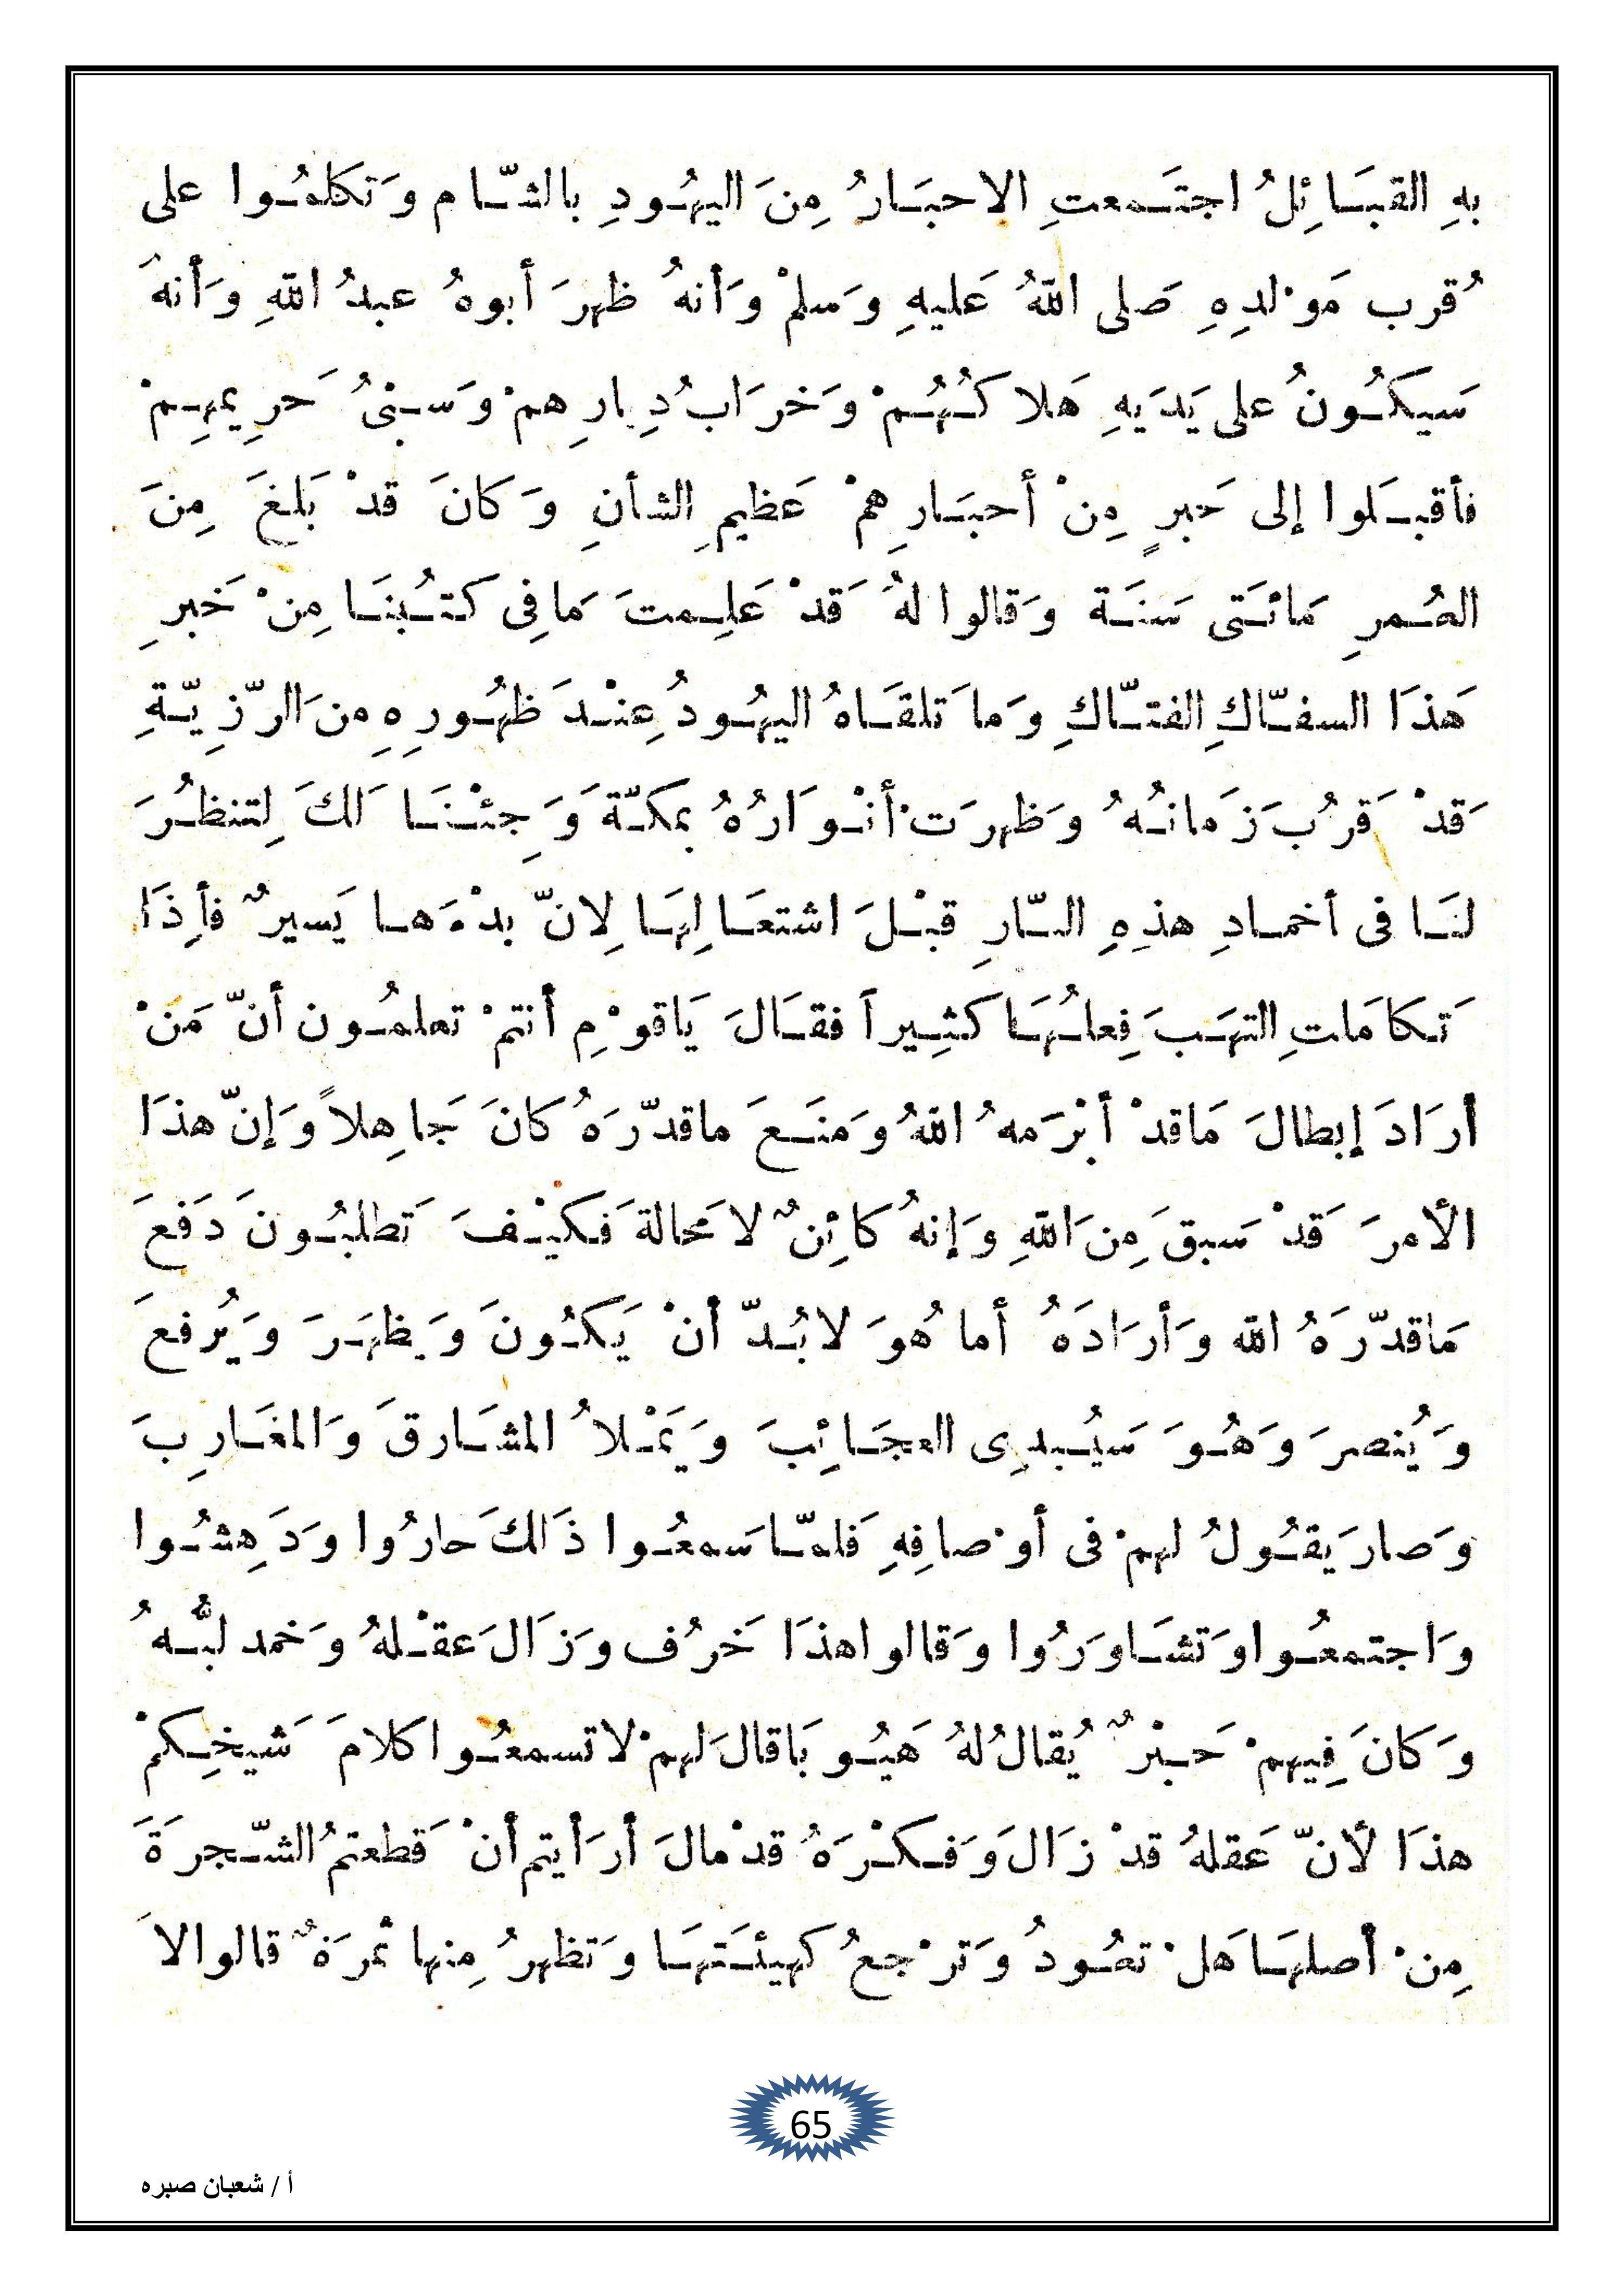 بهِ القبَـائِلُ اجتَـمعتِ الاحبَـارُ مِنَ اليهُـودِ بالشّـام وَتكلمُـوا على
قُرب مَوْلدِهِ صَلى اللهُ عَليهِ وَسلمْ وَأنهُ ظهرَ أبوهُ عبدُ اللهِ وَأنهَ
سَيكُـونُ على يَدَيهِ هَلاكـُهُـمْ وَخرَابُ دِيارِهمْ وَسـبْىُ حَرِيمهِـمْ
فأقبـَلوا إلى حَبرٍ مِنْ أحبَـارِهمْ عَظيمِ الشأنِ وَكانَ قدْ بَلغَ مِنَ
العُـمرِ مَائـَتى سَنـَة وَقالوا لهُ قَدْ عَلِـمتَ مَافِى كـتـُبنَـا مِنْ خَبرِ
هَذَا السفـّاكِ الفتـّاكِ وَما تَلقـَاهُ اليهُـودُ عِنْـدَ ظهُـورِهِ مِن الرّزِيّـةِ
قَدْ قَرُبَ زَمانـُهُ وَظهرَت أنْـوَارُهُ بمكـّة وَجِئْـنَـا لَكَ لِتنظـُرَ
لنَـا فى أخمـادِ هذِهِ النـّارِ قبْـلَ اشتعَـالِهَـا لِانّ بدْءَهـا يَسيرٌ فأِذَا
تَـكامَلتِ التهَـبَ فِعلـُهَـا كثِـيراً فقـَالَ يَاقوْمِ أنتمْ تعلمُـون أنّ مَنْ
أرَادَ إبطالَ مَاقدْ أبْرَمهُ اللهُ وَمنَـعَ ماقدّرَهُ كانَ جَاهِلاً وَإنّ هذَا
الأمرَ قَدْ سَبقَ مِنَ اللهِ وَإنهُ كائِنٌ لا مَحالة فَكيْـفَ تَطلبُـونَ دَفعَ
مَاقدّرَهُ الله وَأرَادَهُ أما هُوَ لابُـدّ أنْ يَكـُونَ وَيظهَـرَ وَيُرفعَ
وَيُنصرَ وَهُـوَ سَيُـبدِى العجَـائِبَ وَيَمْـلأُ المشَـارقَ وَالمغَـارِبَ
وَصارَ يَقـُولُ لهمْ فى أوْصافِهِ فَلمـّا سَمعُـوا ذَالكَ حارُوا وَدَهِشـُوا
وَاجتمعُـوا وَتشَـاوَرُوا وَقالوا هذَا خَرُف وَزَالَ عَقـْلهُ وَخمد لبُّـهُ
وَكانَ فِيهمْ حَـبْرٌ يُقالُ لهُ هَيُـوبَا قالَ لهمْ لا تسمعُـوا كلامَ شَيخِـكمْ
هذَا لأنّ عَقلهُ قدْ زَالَ وَفَـكـْرَهُ قدْ مالَ أرَأيتم أنْ قَطعتمُ الشّـجرَةَ
مِنْ أصلهَـا هَلْ تعُـودُ وَترْجعُ كهيئـَتهَـا وَتظهرُ مِنها ثمرَةٌ قالوا لاَ
65
أ / شعبان صبره